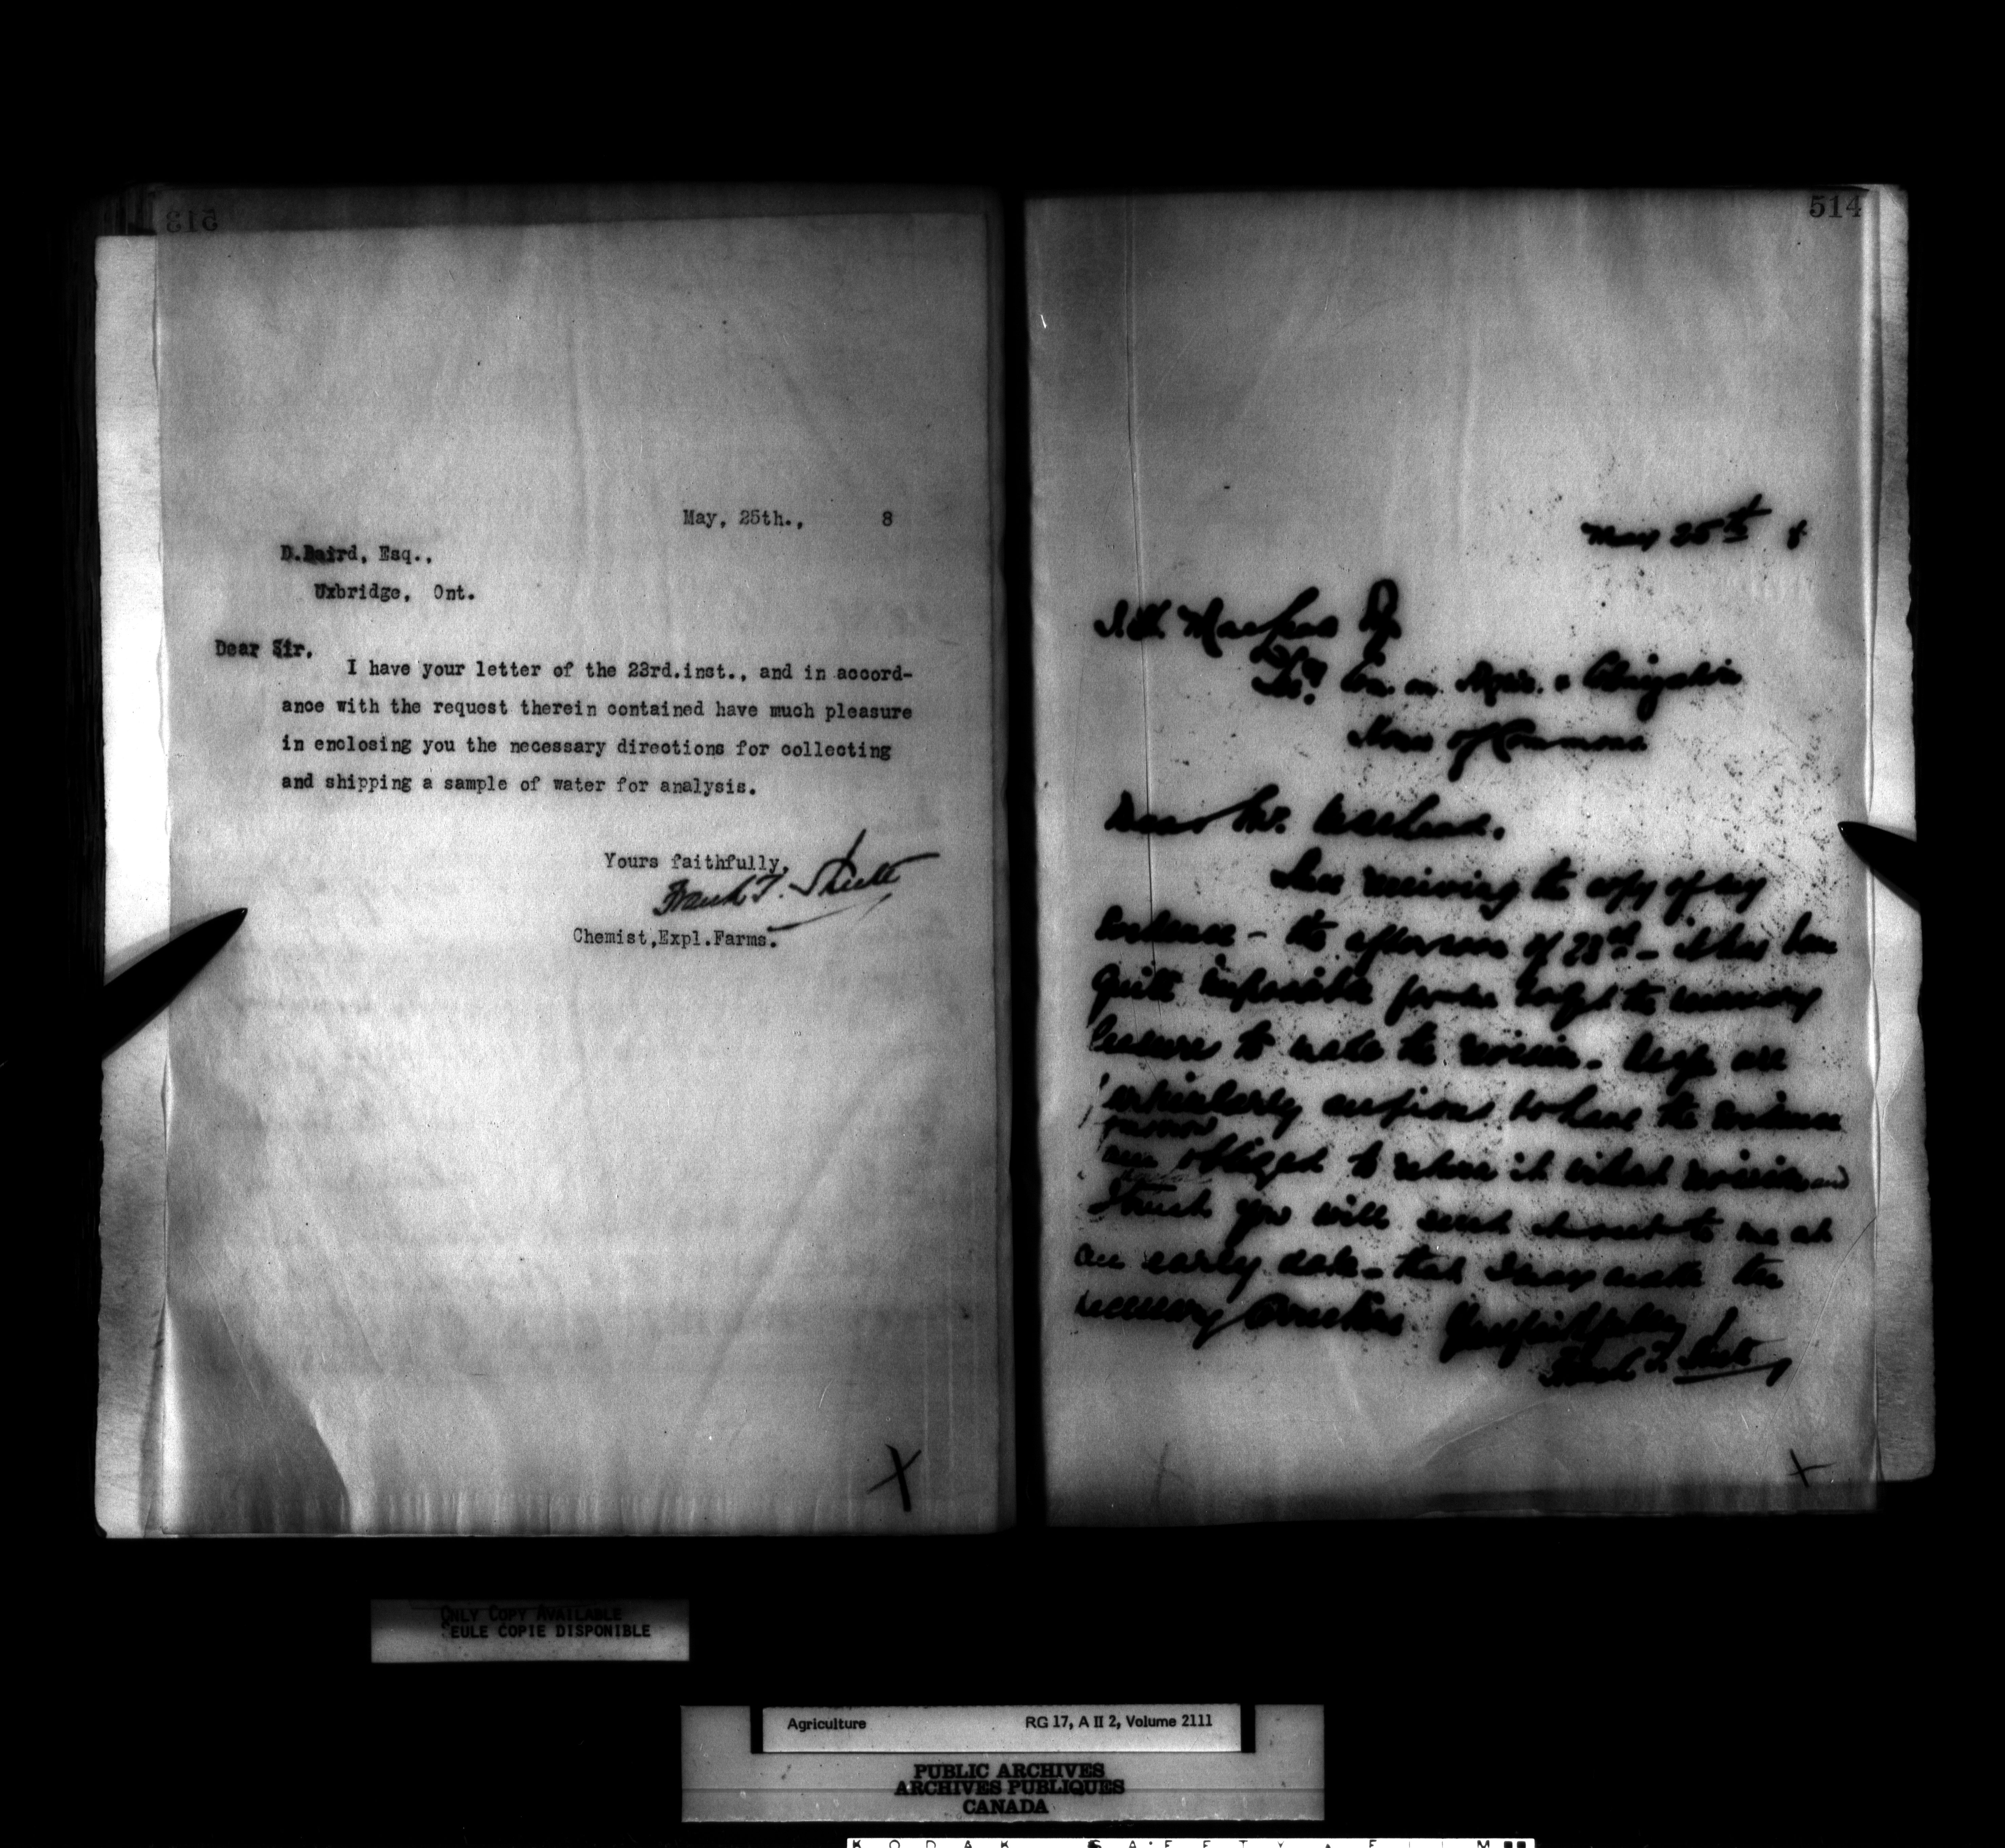 513
May, 25th., 8
D.Baird, Esq.,
Uxbridge, Ont.
Dear Sir.
I have your letter of the 23rd.inst., and in accord-
ance with the request therein contained have much pleasure
in enclosing you the necessary directions for collecting
and shipping a sample of water for analysis.
Yours faithfully,
Frank T. Shutt
Chemist,Expl.Farms.
X
514
May 25th 8
Com. on Agric. &
House of Commons
Dear Mr.
Since receiving the copy of my
Evidence - the afternoon of 23rd - it has been
quite impossible for me to get the necessary
leisure to make the revision. as
particularly anxious to have the Evidence
am obliged to return it without revision and
trust you will send to me at
an early date - that I may make the
necessary corrections. Yours faithfully
Frank T. Shutt
X
ONLY COPY AVAILABLE
SEULE COPIE DISPONIBLE
Agriculture RG 17, A II 2, Volume 2111
PUBLIC ARCHIVES
ARCHIVES PUBLIQUES
CANADA
KODAK SAFETY FILM